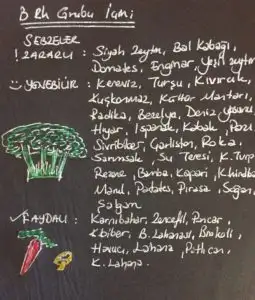 B Rh Grubu İçin;
SEBZELER
! ZARARLI : Siyah Zeytin, Bal Kabağı,
Domates, Enginar, Yeşil Zeytin
YENEBİLİR : Kereviz, Turşu, Kıvırcık,
Kuşkonmaz, Kültür Mantarı,
Radika, Bezelye, Deniz Yosunu,
Hıyar, Ispanak, Kabak, Pazı
Sivribiber, Çarliston, Roka,
Sarımsak, Su Teresi, K. Turp
Rezene, Bamba, Kapari, K. hindiba
Marul, Patates, Pırasa, Soğan,
Şalgam
✓ FAYDALI : Karnıbahar, Zencefil, Pancar,
K.biber, B. Lahanası, Brokoli,
Havuç, Lahana, Patlıcan,
K. Lahana.